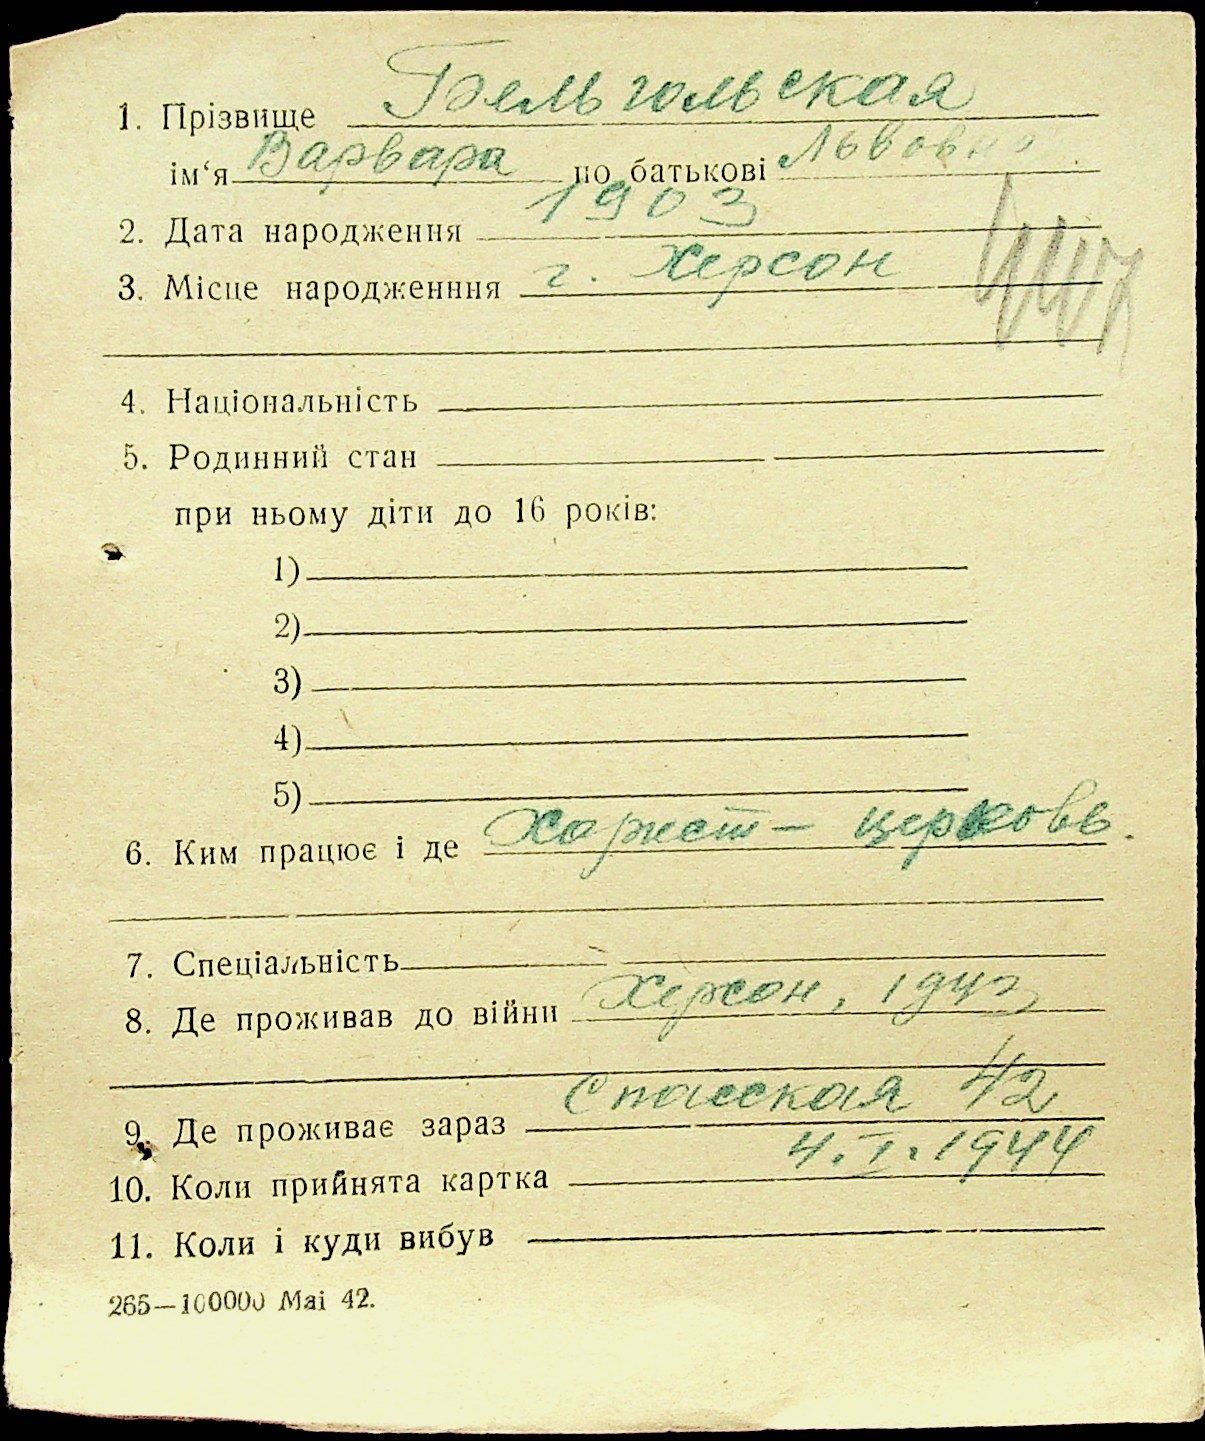 1. Прізвище Бельгольская
ім‘я Варвара по батькові Львовна
2. Дата народження 1903
3. Місце народженння г. Херсон
4. Національність
5. Родинний стан
при ньому діти до 16 років:
1)
2)
3)
4)
5)
6. Ким працює і де Хорист — церковь.
7. Спеціальність
8. Де проживав до війни Херсон, 1943
9. Де проживає зараз Спасская 42
10. Коли прийнята картка 4.I.1944
11. Коли і куди вибув
265—100000 Mai 42.